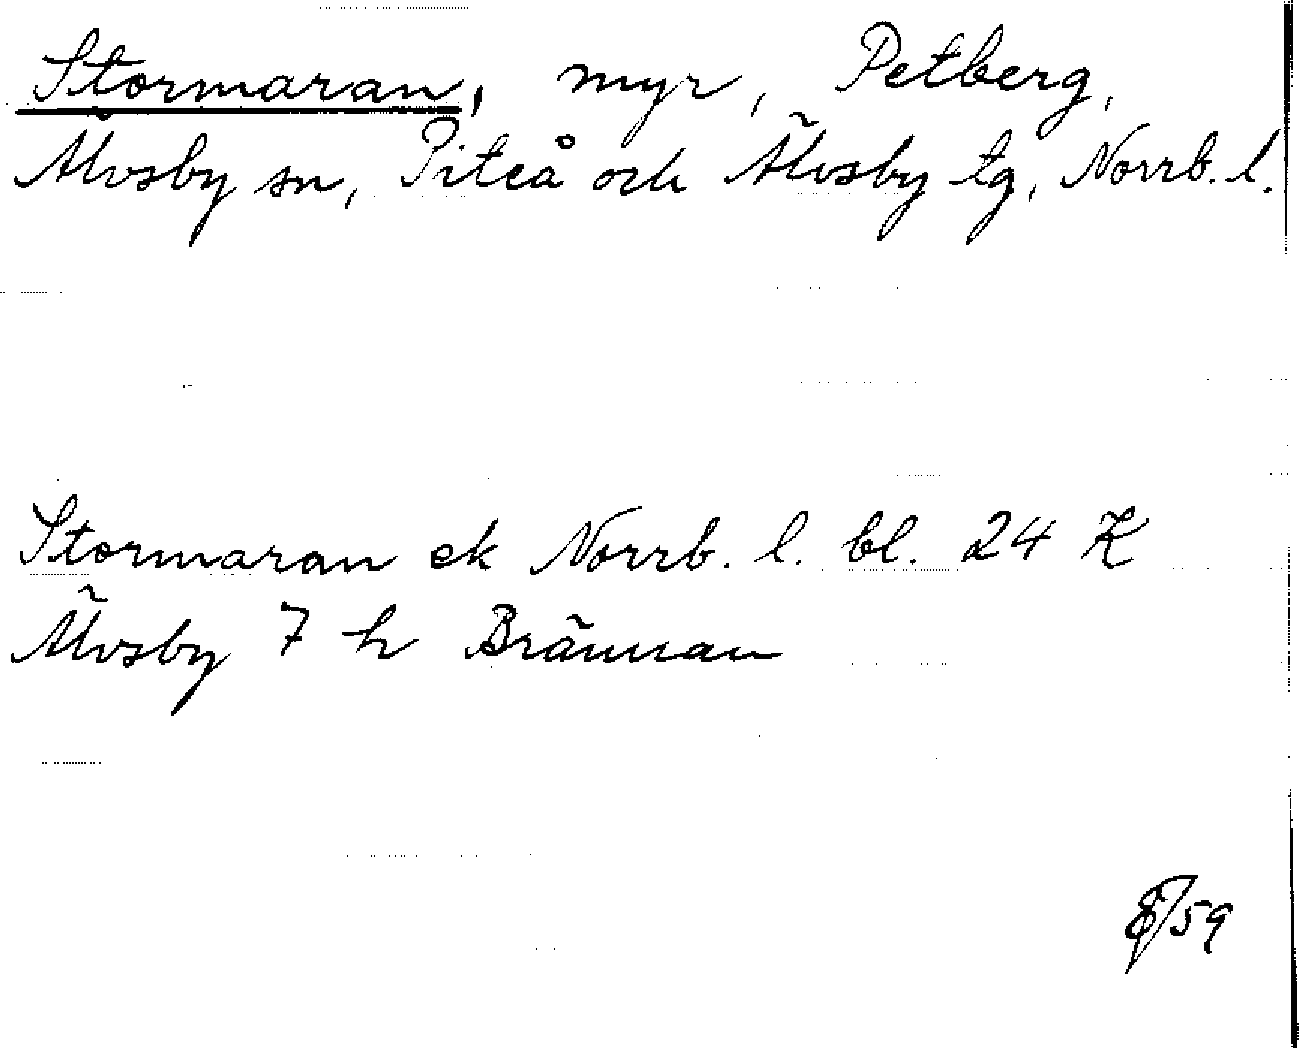 Stormaran, myr, Petberg,
Älvsby sn, Piteå och Älvsby tg, Norrb. l.
Stormaran ek Norrb. l. bl. 24 K
Älvsby 7 h Brännan
59